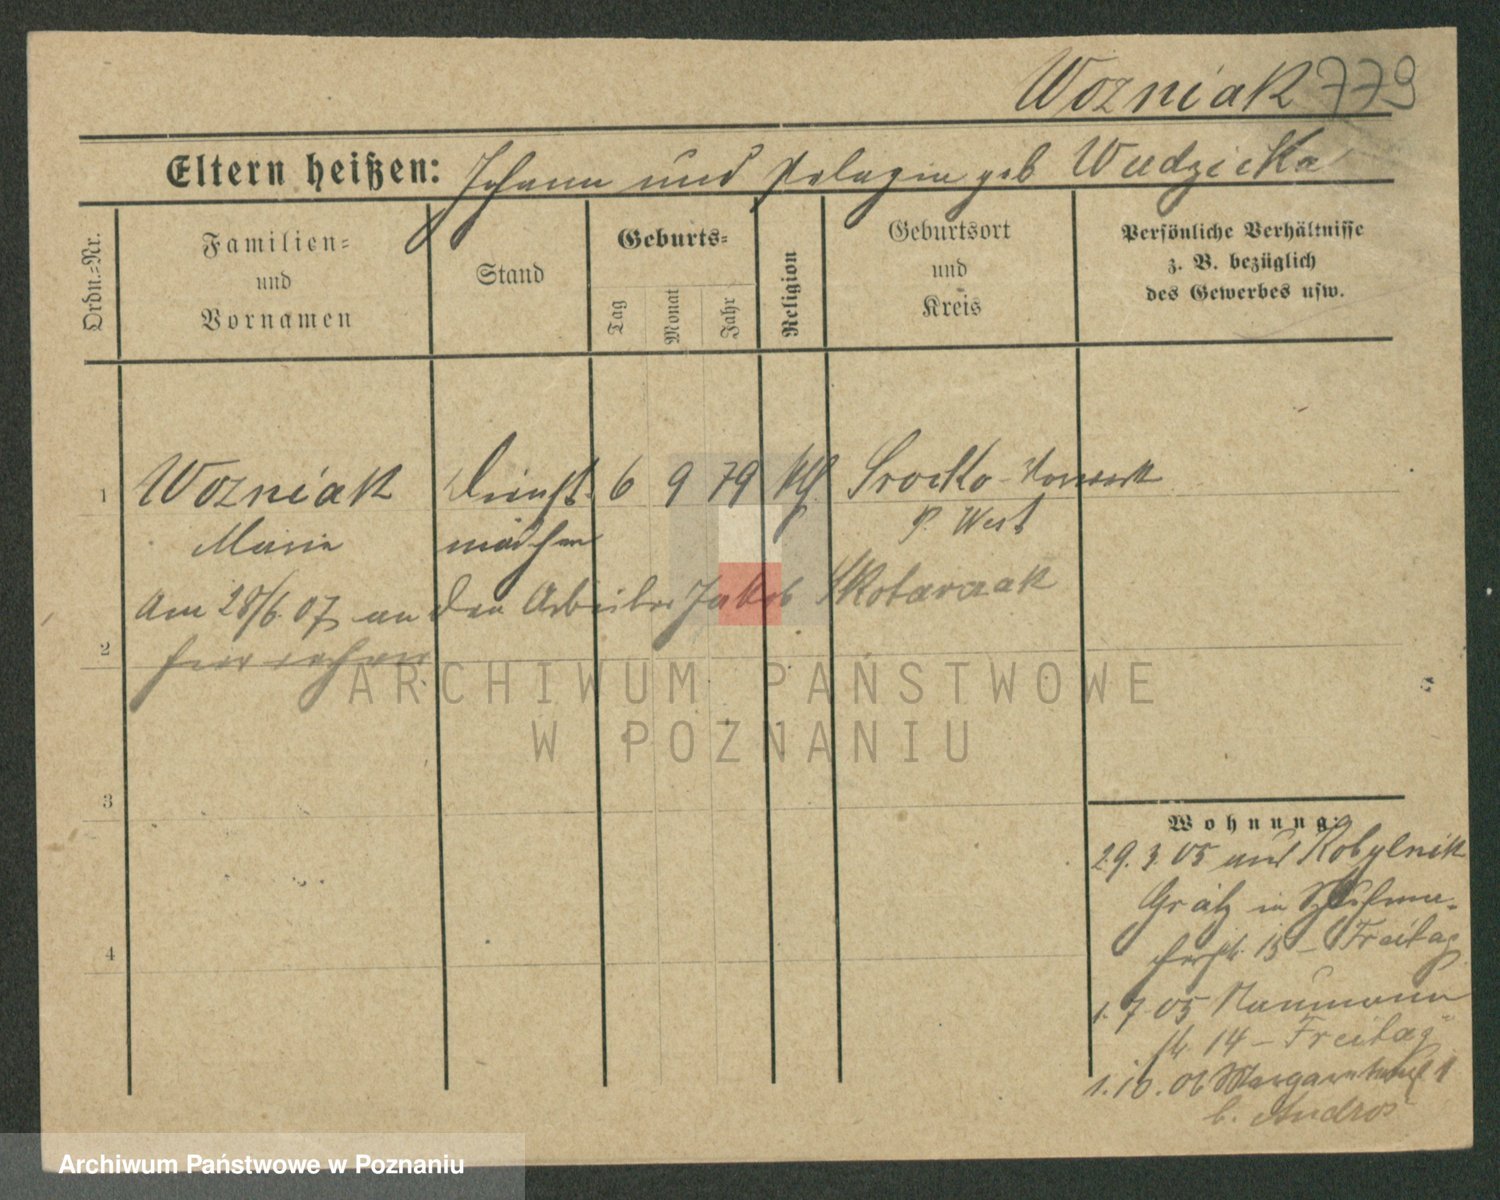 Wozniak 779
Eltern heißen: Johann und Pelagia geb Wudzicka
Ordn.-Nr.
Familien-
und
Vornamen
Stand
Geburts-
Tag
Monat
Jahr
Religion
Geburtsort
und
Kreis
Persönliche Verhältnisse
z. B. bezüglich
des Gewerbes usw.
1 Wozniak Dienst- 6 9 79 kth. Srocko-
Maria mädchen P. West
Am 28/6. 07 an den Arbeiter Jakob Skotarczak
2
3
4
Wohnung:
29. 3. 05 aus Kobylnik
Grätz in
15 – Freitag
1. 7. 05 Naumann
str. 14 – Freitag
1. 10. 06 1
b. Andros
ARCHIWUM PAŃSTWOWE
W POZNANIU
Archiwum Państwowe w Poznaniu